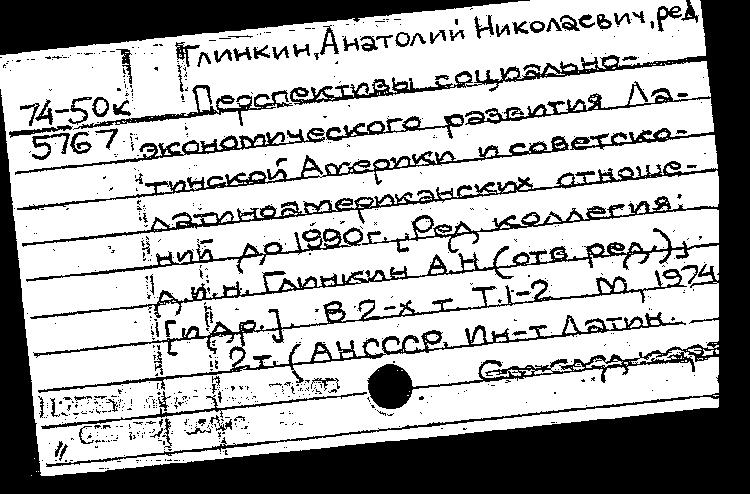 Глинкин, Анатолий Николаевич, ред.
74-50к
5767
Перспективы социально-
экономического развития Ла-
тинской Америки и советско-
латиноамериканских отноше-
ний до 1990г. [Ред. коллегия:
д.и.н. Глинкин А.Н. (отв. ред.),
[и др.]. В 2-х т. Т.1-2 М., 1974
2т. (АН СССР. Ин-т Латин.
См. след. карт
"